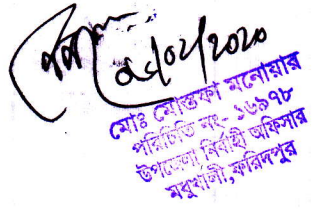 ০৫/০২/২০২০
মোঃ মোস্তফা মনোয়ার
পরিচিতি নং- ১৬৯৭৮
উপজেলা নির্বাহী অফিসার
মধুখালী, ফরিদপুর